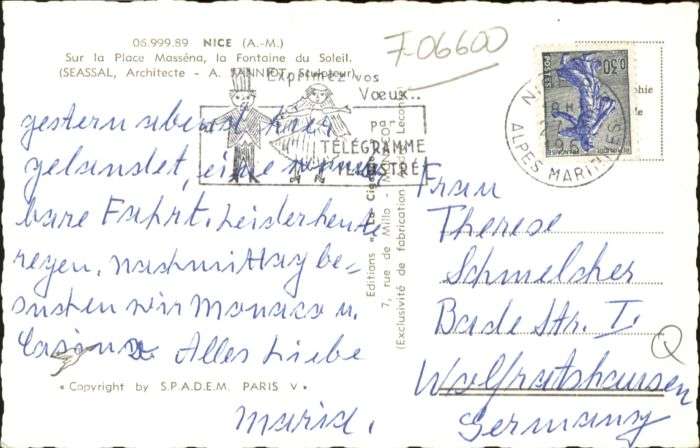 7-06600
06.999.89 NICE (A.-M.)
Sur la Place Masséna, la Fontaine du Soleil.
(SEASSAL, Architecte - A. JANNIOT, Sculpteur)
Exprimez vos
Vœux..
PAR
TÉLÉGRAMME
ILLUSTRÉ
0,50
POSTES
NICE
ALPES MARITIMES
gestern abend hier
gelandet, eine wunder
bare Fahrt. Leider heute
regen, Nachmittag be-
suchen wir Monaco u.
Casino Alles Liebe
Maria.
Editions " La Cigogne
7, rue de Millo - MONACO
(Exclusivité de fabrication Lecon
Frau
Therese
Schmelcher
Bade Str. I
Wolfratshausen
Germany
« Copyright by S.P.A.D.E.M. PARIS V »